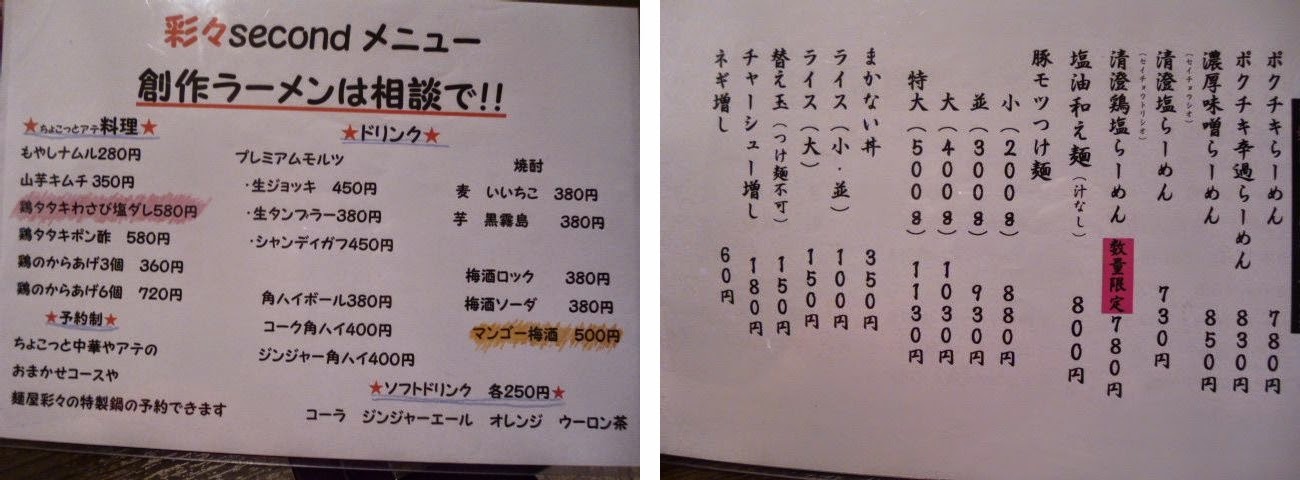 彩々second メニュー
創作ラーメンは相談で!!
★ちょこっとアテ料理★
もやしナムル280円
山芋キムチ 350円
鶏タタキわさび塩ダレ580円
鶏タタキポン酢 580円
鶏のからあげ3個 360円
鶏のからあげ6個 720円
★予約制★
ちょこっと中華やアテの
おまかせコースや
麺屋彩々の特製鍋の予約できます
★ドリンク★
プレミアムモルツ
・生ジョッキ 450円
・生タンブラー380円
・シャンディガフ450円
角ハイボール380円
コーク角ハイ400円
ジンジャー角ハイ400円
焼酎
麦 いいちこ 380円
芋 黒霧島 380円
梅酒ロック 380円
梅酒ソーダ 380円
マンゴー梅酒 500円
★ソフトドリンク 各250円★
コーラ ジンジャーエール オレンジ ウーロン茶
ポクチキらーめん 780円
ポクチキ辛過らーめん 830円
濃厚味噌らーめん 850円
清澄塩らーめん 730円
(セイチョウシオ)
清澄鶏塩らーめん 数量限定 780円
(セイチョウトリシオ)
塩油和え麺(汁なし) 800円
豚モツつけ麺
小(200g) 880円
並(300g) 930円
大(400g) 1030円
特大(500g) 1130円
まかない丼 350円
ライス(小・並) 100円
ライス(大) 150円
替え玉(つけ麺不可) 150円
チャーシュー増し 180円
ネギ増し 60円